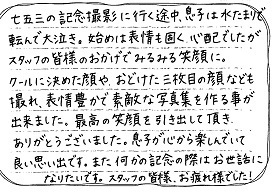 七五三の記念撮影に行く途中、息子は水たまりで
転んで大泣き。始めは表情も固く心配でしたが
スタッフの皆様のおかげでみるみる笑顔に。
クールに決めた顔や、おどけた三枚目の顔なども
撮れ、表情豊かで素敵な写真集を作る事が
出来ました。最高の笑顔を引き出して頂き
ありがとうございました。息子が心から楽しんでいて
良い思い出です。また何かの記念の際はお世話に
なりたいです。スタッフの皆様、お疲れ様でした!